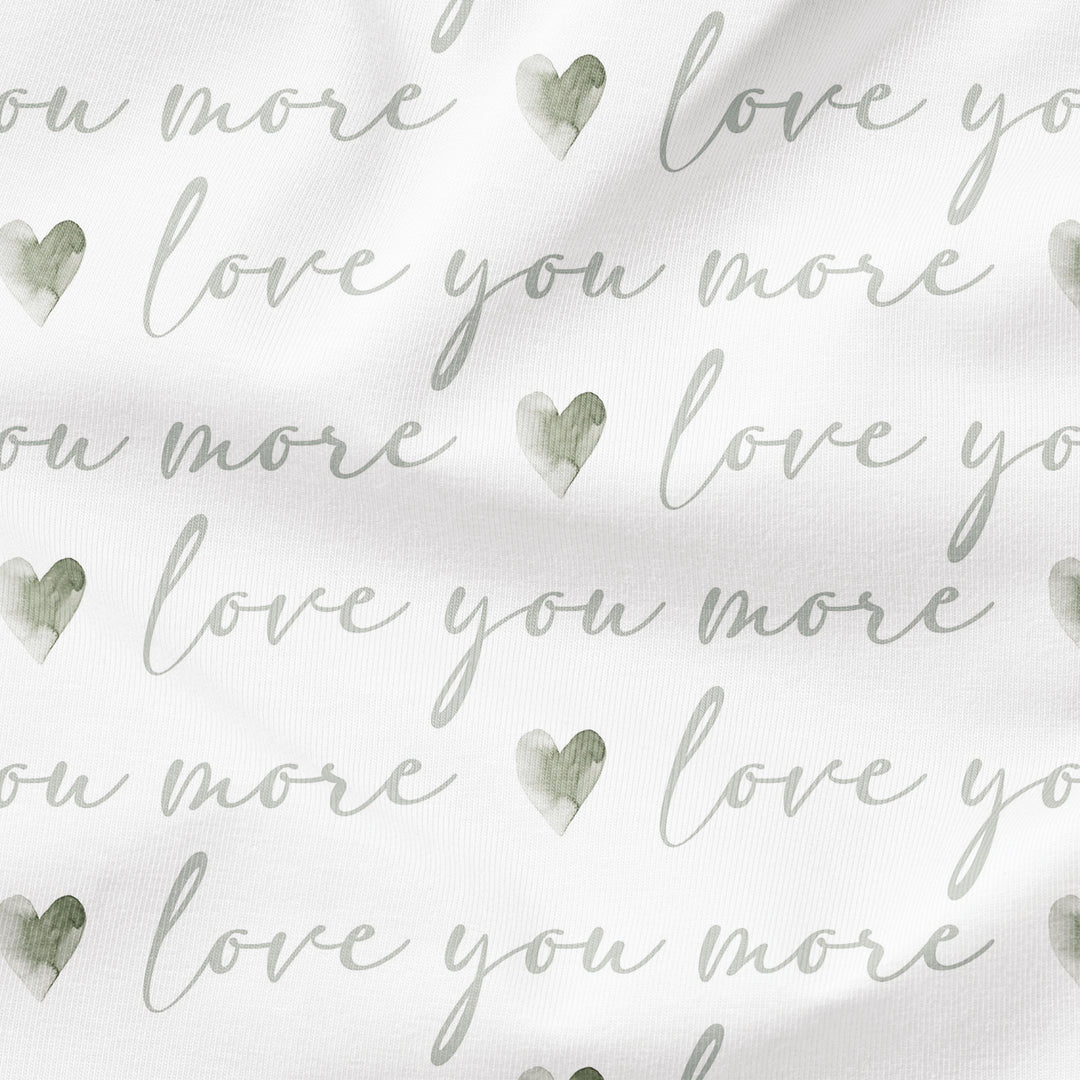 ou more love yo
love you more
ou more love yo
love you more
ou more love yo
love you more